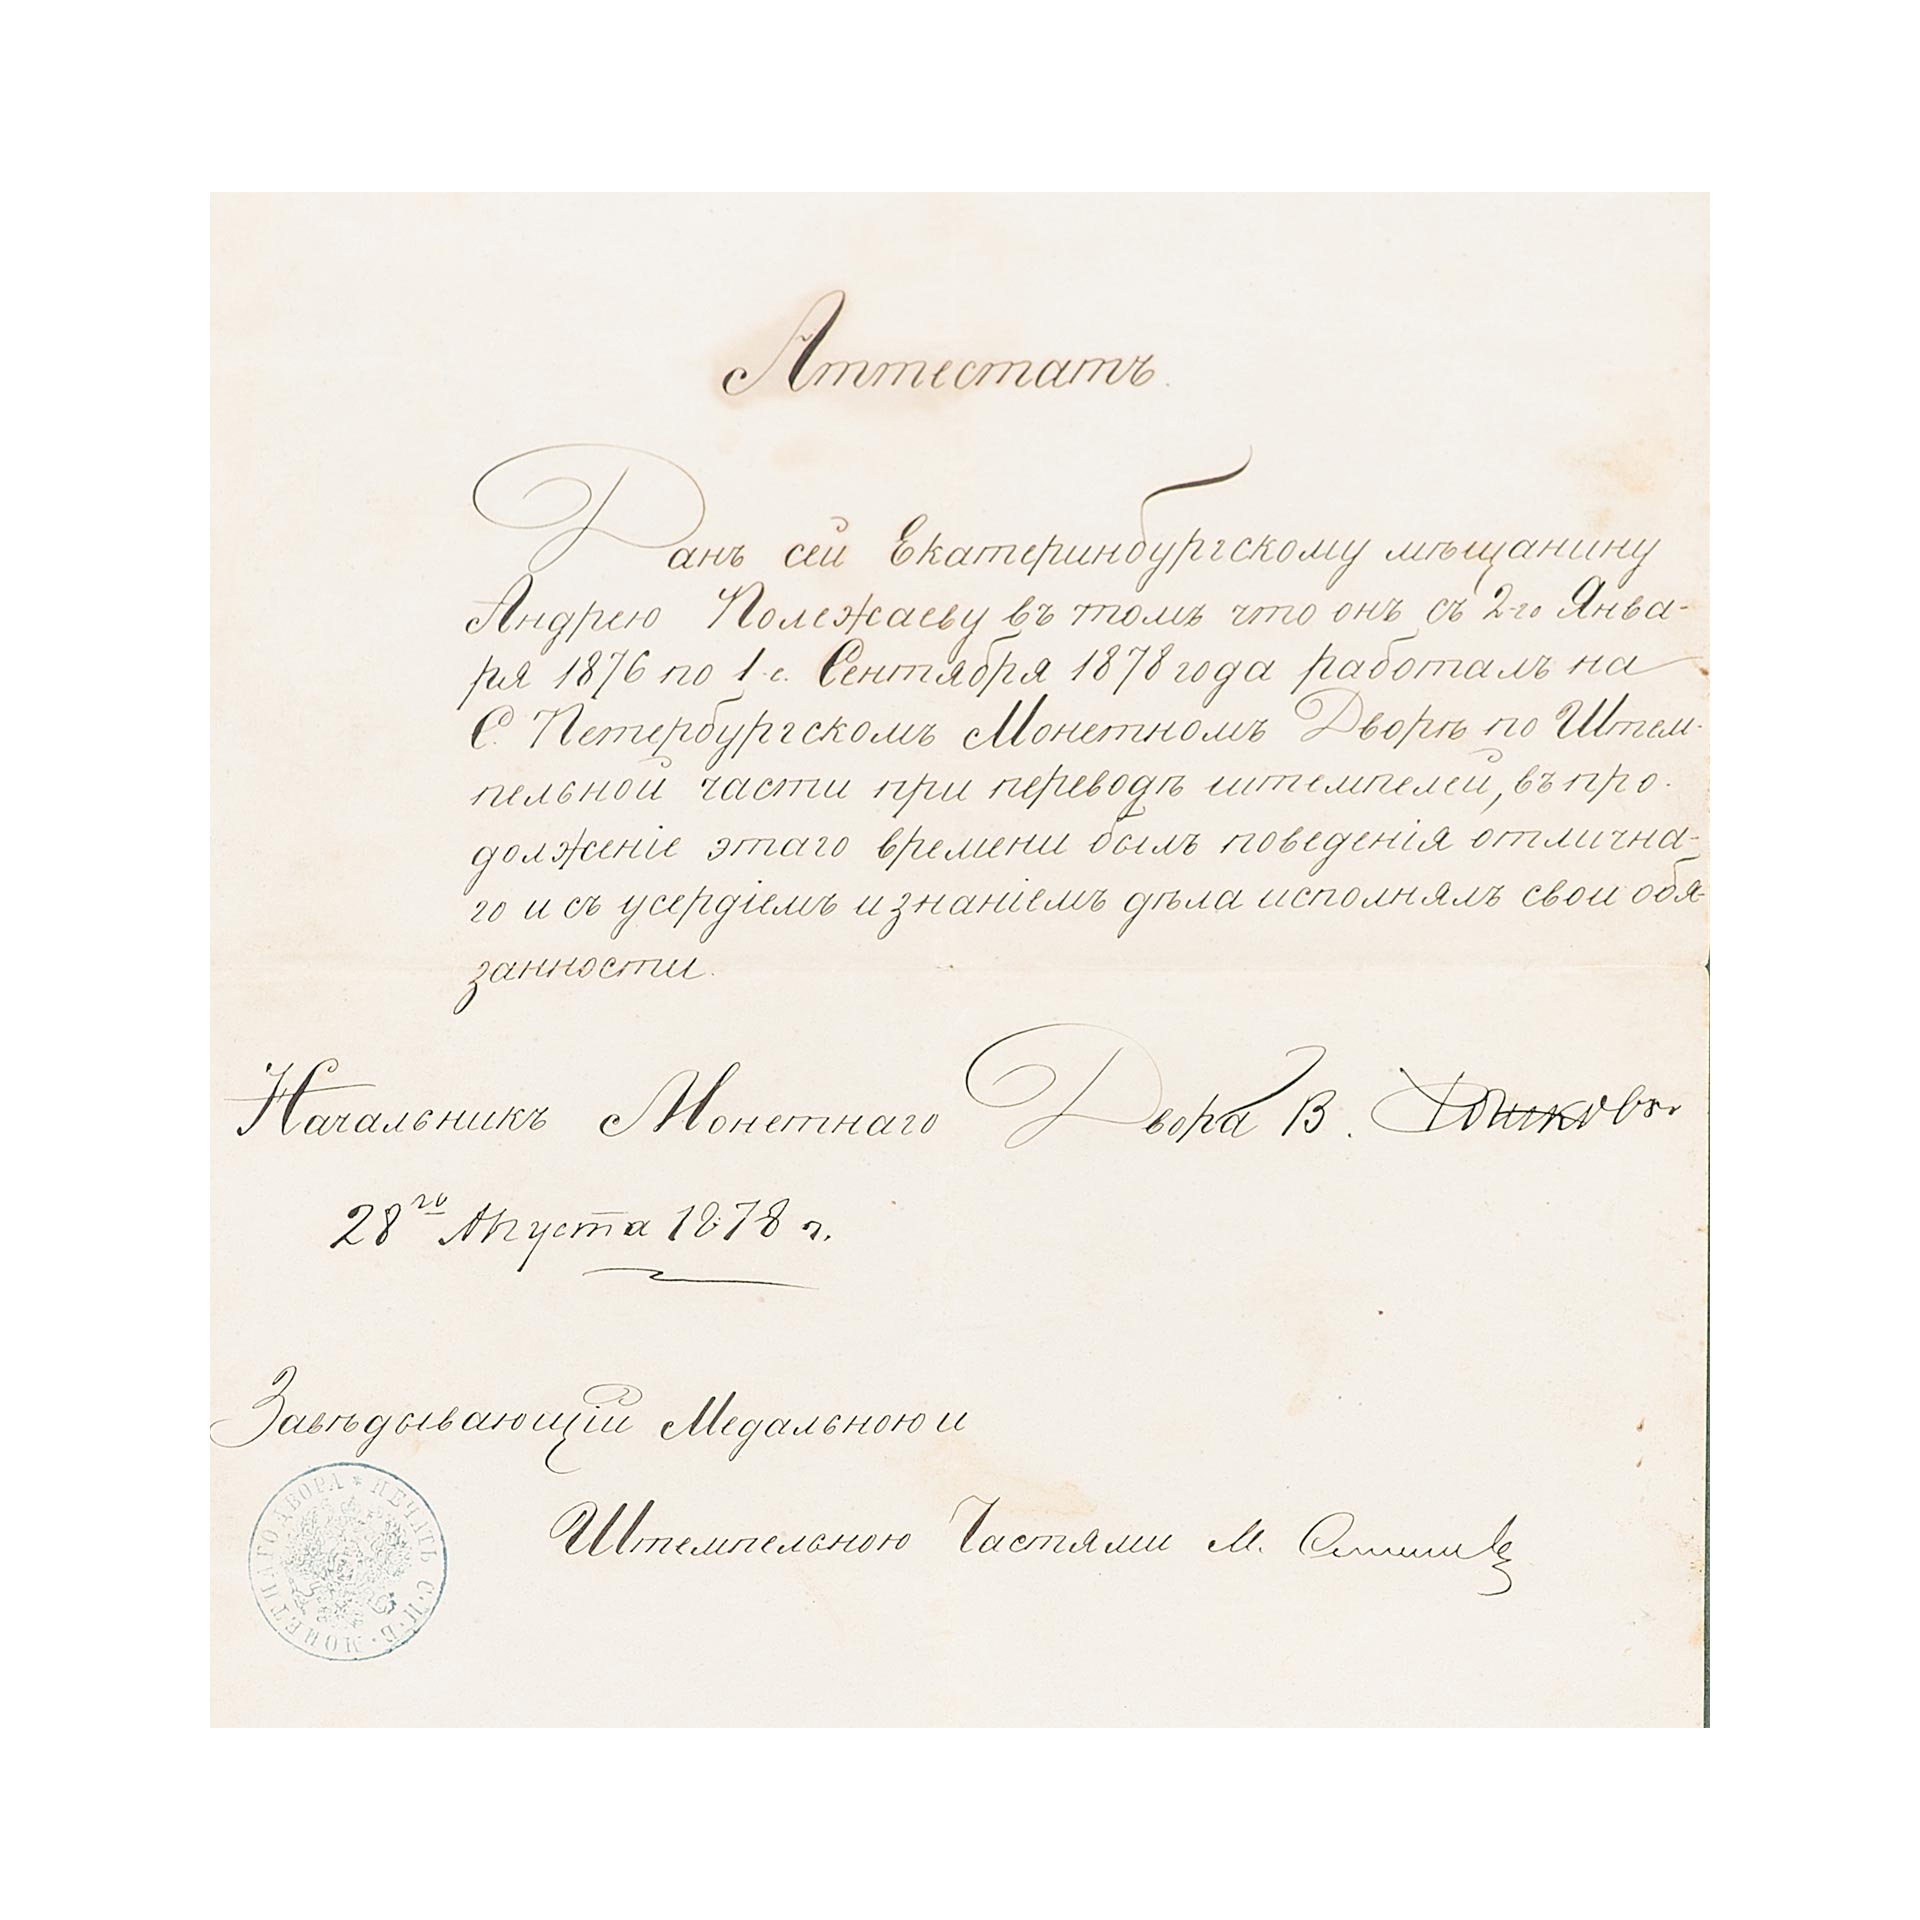 Аттестатъ.
Данъ сей Екатеринбургскому мѣщанину
Андрею Полежаеву въ томъ что онъ съ 2-го Янва-
ря 1876 по 1-е. Сентября 1878 года работалъ на
С. Петербургскомъ Монетномъ Дворѣ по Штем-
пельной части при переводѣ штемпелей, въ про-
долженіе этаго времени былъ поведенія отлична-
го и съ усердіемъ и знаніемъ дѣла исполнялъ свои обя-
занности.
Начальникъ Монетнаго Двора В.
28го Августа 1878 г.
Завѣдывающій Медальною и
Штемпельною Частями М.
ПЕЧАТЬ С.П.Б. МОНЕТНАГО ДВОРА *